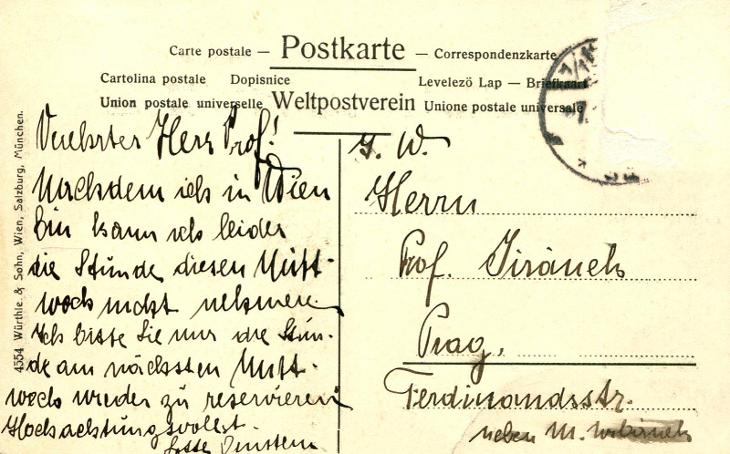 Carte postale — Postkarte — Correspondenzkarte
Cartolina postale Dopisnice Levelezö Lap — Briefkaart
Union postale universelle Weltpostverein Unione postale universale
4554 Würthle & Sohn, Wien, Salzburg, München.
Verehrter Herr Prof!
Nachdem ich in Wien
bin kann ich leider
die Stunde diesen Mitt-
woch nicht nehmen.
Ich bitte Sie mir die Stun-
de am nächsten Mitt-
woch wieder zu reservieren
Hochachtungsvollst.
S. W.
Herrn
Prof. Jiránek
Prag,
Ferdinandsstr.
neben M.